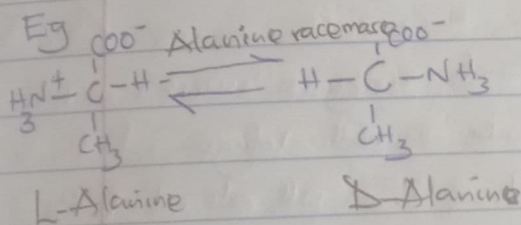 Eg
COO⁻ Alanine racemase COO⁻
H₃N⁺–C–H ⇌ H–C–NH₃
CH₃ CH₃
L-Alanine D-Alanine